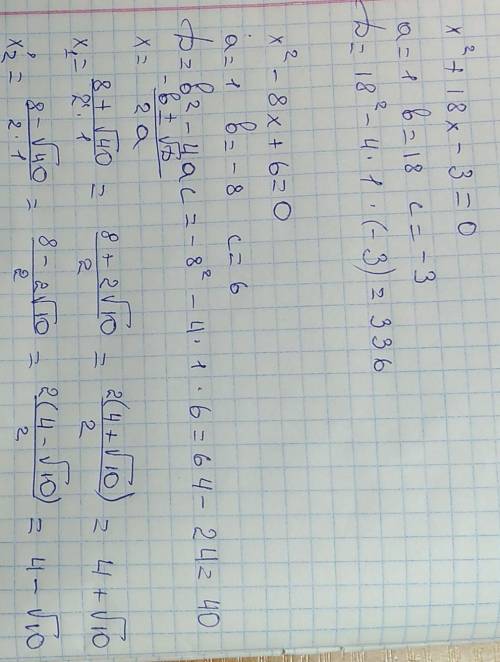 x² + 18x - 3 = 0
a = 1 b = 18 c = -3
D = 18² - 4 · 1 · (-3) = 336
x² - 8x + 6 = 0
a = 1 b = -8 c = 6
D = b² - 4ac = -8² - 4 · 1 · 6 = 64 - 24 = 40
x = (-b ± √D)/2a
x₁ = (8 + √40)/(2 · 1) = (8 + 2√10)/2 = 2(4 + √10)/2 = 4 + √10
x₂ = (8 - √40)/(2 · 1) = (8 - 2√10)/2 = 2(4 - √10)/2 = 4 - √10